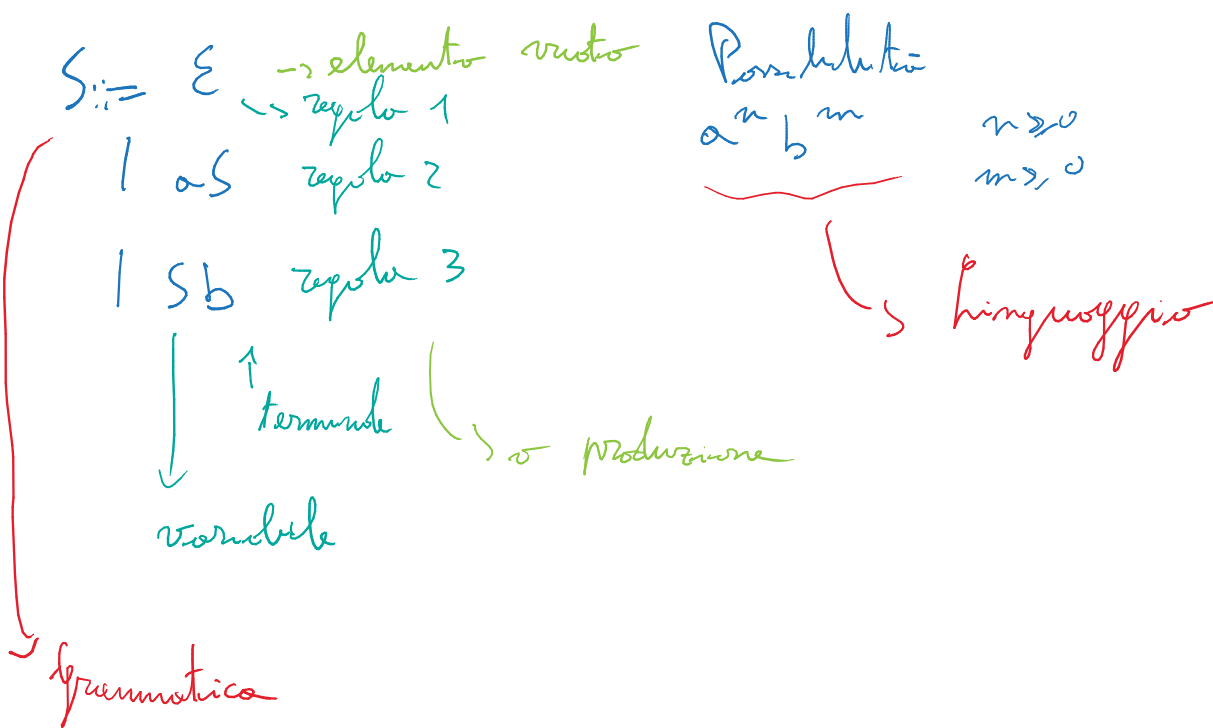 S::= ε -> elemento vuoto
-> regola 1
| aS regola 2
| Sb regola 3
terminale
o produzione
variabile
Grammatica
Possibilità
aⁿ bᵐ n ≥ 0
m ≥ 0
Linguaggio